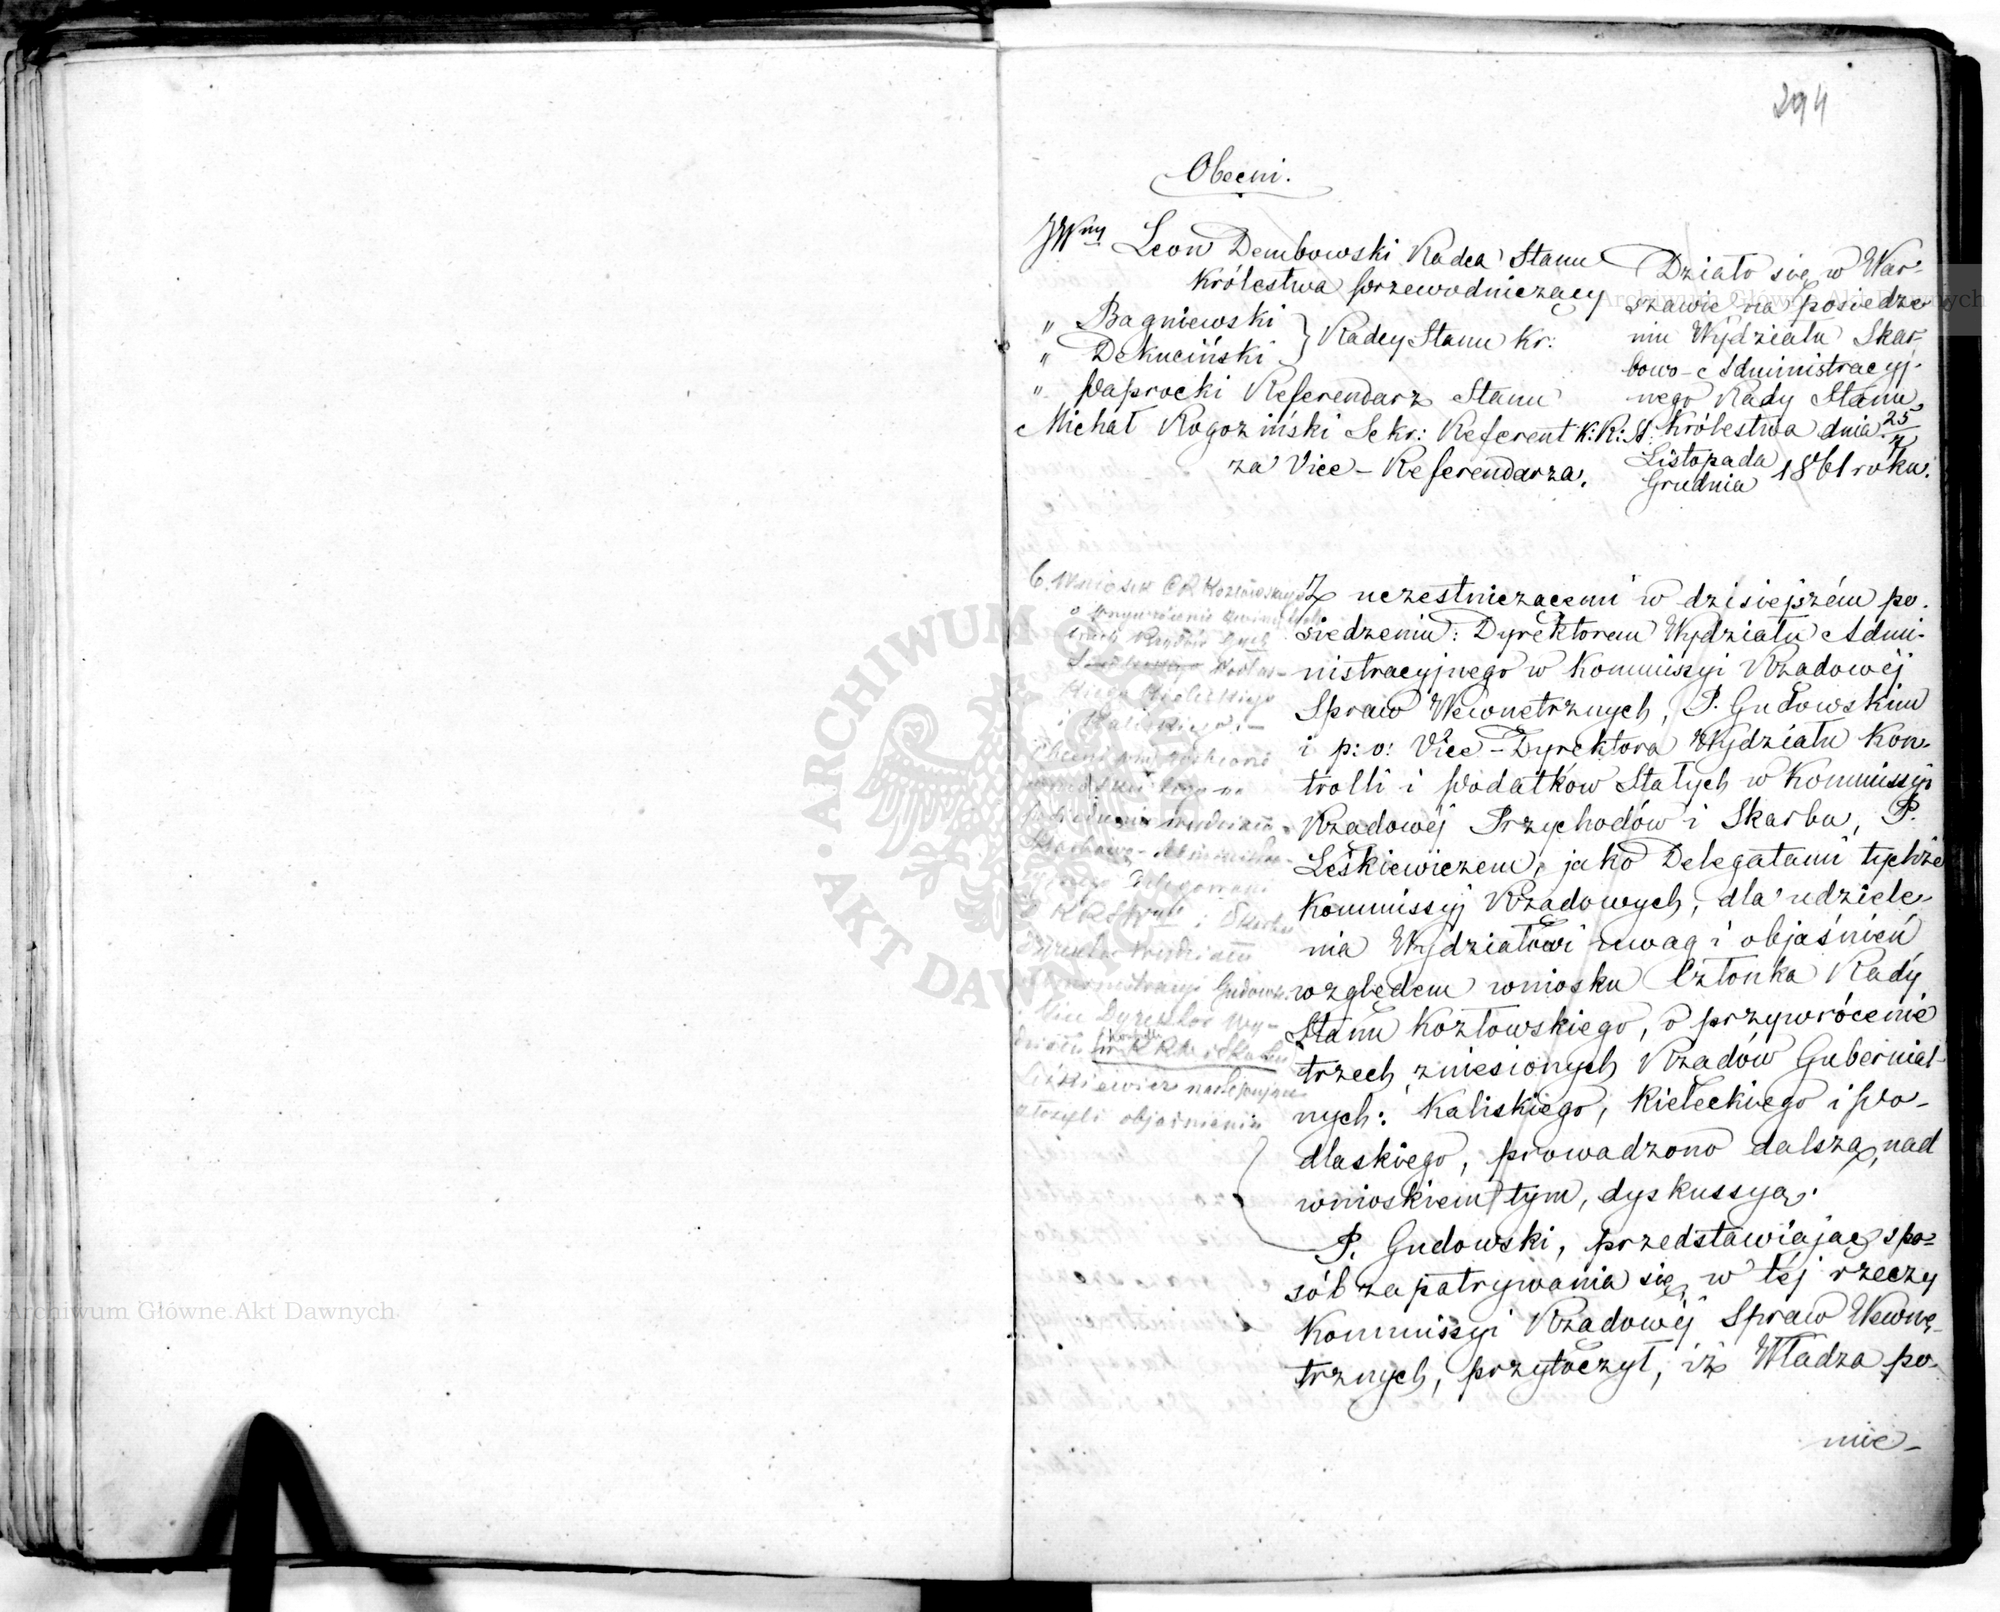 294
Obecni.
JWny Leon Dembowski Radca Stanu
Królestwa Przewodniczący
" Bagniewski
" Dekuciński } Radcy Stanu Kr:
" Paprocki Referendarz Stanu
Michał Rogoziński Sekr: Referent K: R: S:
za Vice-Referendarza.
Działo się w War-
szawie na posiedze-
niu Wydziału Skar-
bowo-Administracyj-
nego Rady Stanu
Królestwa dnia 25/7
Listopada/Grudnia 1861 roku.
6. Wniosek C R Kozłowskiego
o przywrócenie
trzech Rządów Gub
Podlas-
kiego Kieleckiego
i Kaliskiego.-
posiedzeniu wydziału
Skarbowo-Administra-
cyjnego Delegowani
z KRSWnych i Skarbu
Dyrektor wydziału
Administracyi Gudowski
i Vice Dyrektor Wy-
działu Kontrolli w KRPr i Skarbu
Leśkiewicz następujące
złożyli objaśnienia
Z uczestniczącemi w dzisiejszém po-
siedzeniu: Dyrektorem Wydziału Admi-
nistracyjnego w Kommissyi Rządowéj
Spraw Wewnętrznych, P. Gudowskim
i p: o: Vice-Dyrektora Wydziału Kon-
trolli i Podatków Stałych w Kommissyi
Rządowéj Przychodów i Skarbu, P.
Leśkiewiczem, jako Delegatami tychże
Kommissyj Rządowych, dla udziele-
nia Wydziałowi uwag i objaśnień
względem wniosku Członka Rady
Stanu Kozłowskiego, o przywrócenie
trzech zniesionych Rządów Gubernial-
nych: Kaliskiego, Kieleckiego i Po-
dlaskiego, prowadzono dalszą, nad
wnioskiem tym, dyskussyą.
P. Gudowski, przedstawiając spo-
sób zapatrywania się w téj rzeczy
Kommissyi Rządowéj Spraw Wewnę-
trznych, przytoczył, iż Władza po-
mie-
Archiwum Główne Akt Dawnych
Archiwum Główne Akt Dawnych